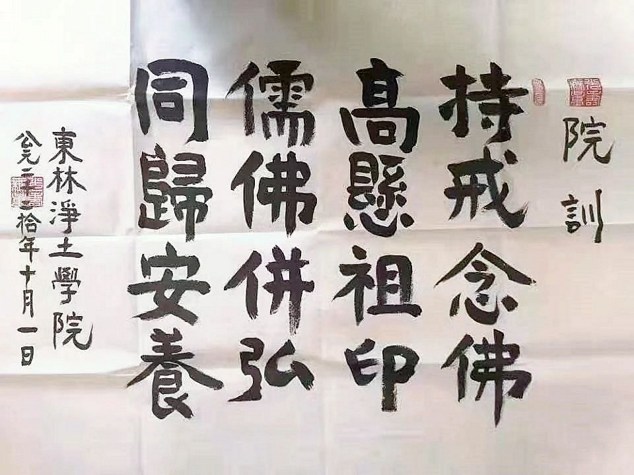 院訓
持戒念佛
高懸祖印
儒佛併弘
同歸安養
東林淨土學院
公元二千二拾年十月一日